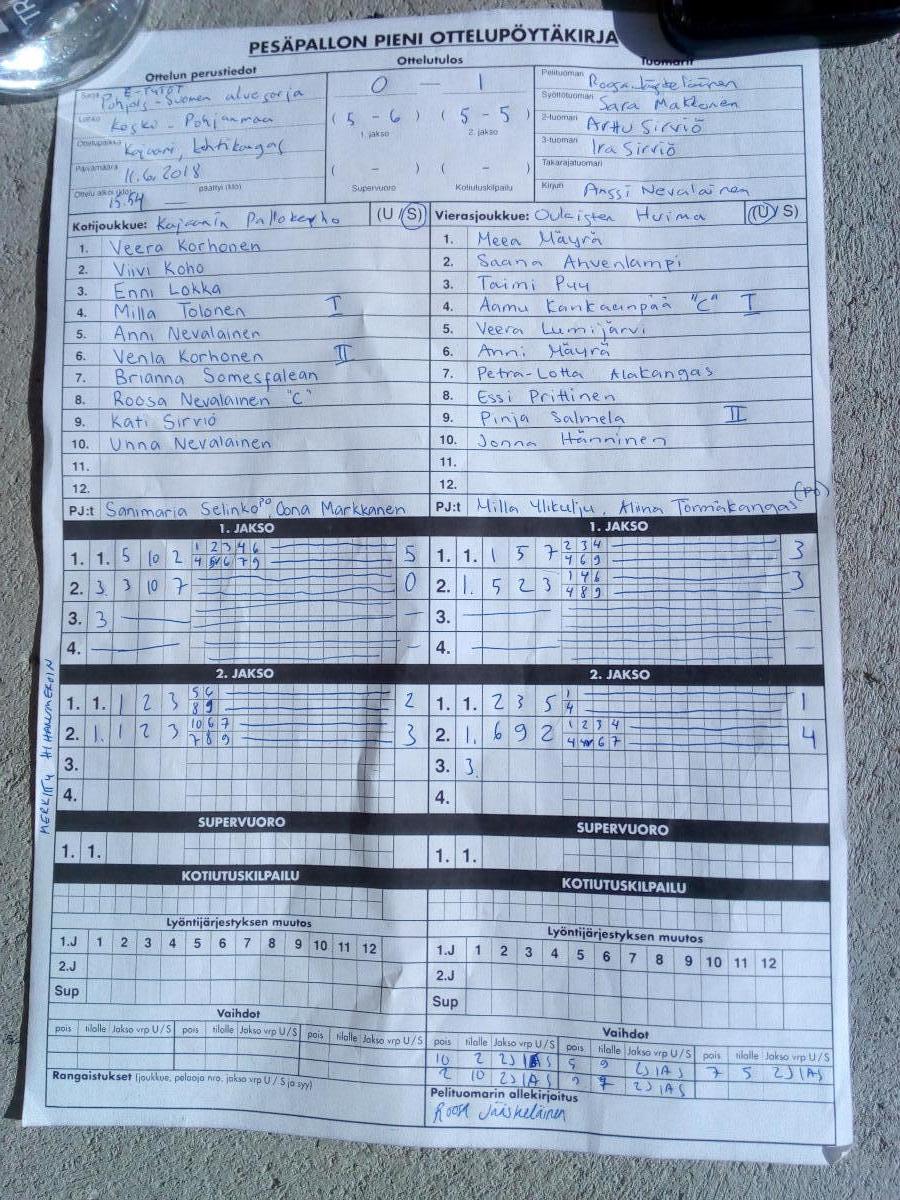 PESÄPALLON PIENI OTTELUPÖYTÄKIRJA
Ottelun perustiedot
Ottelutulos
Tuomarit
Sarja E-Tytöt
Pohjois-Suomen aluesarja
Lohko Kosko - Pohjanmaa
Ottelupaikka Kajaani, Lehtikangas
Päivämäärä 11.6.2018
Ottelu alkoi (klo) 15.54 päättyi (klo)
0 - 1
( 5 - 6 ) ( 5 - 5 )
1. jakso 2. jakso
( - ) ( - )
Supervuoro Kotiutuskilpailu
Pelituomari Roosa Jääskeläinen
Syöttötuomari Sara Makkonen
2-tuomari Arttu Sirviö
3-tuomari Ira Sirviö
Takarajatuomari
Kirjuri Anssi Nevalainen
Kotijoukkue: Kajaanin Pallokerho (U / S)
1. Veera Korhonen
2. Viivi Koho
3. Enni Lokka
4. Milla Tolonen I
5. Anni Nevalainen
6. Venla Korhonen II
7. Brianna Somesfalean
8. Roosa Nevalainen "C"
9. Kati Sirviö
10. Unna Nevalainen
11.
12.
PJ:t Sanimaria Selinko PO, Oona Markkanen
Vierasjoukkue: Oulaisten Huima (U / S)
1. Meea Mäyrä
2. Saana Ahvenlampi
3. Taimi Puu
4. Aamu Kankaanpää "C" I
5. Veera Lumijärvi
6. Anni Mäyrä
7. Petra-Lotta Alakangas
8. Essi Prittinen
9. Pinja Salmela II
10. Jonna Hänninen
11.
12.
PJ:t Milla Ylikulju, Aliina Törmäkangas (PO)
MERKITTY HIHANUMEROIN
1. JAKSO
1. 1. 5 10 2 1 2 3 4 6 5
4 6 7 9
2. 3. 3 10 7 0
3. 3. —
4. — -
1. JAKSO
1. 1. 1 5 7 2 3 4 3
4 6 9
2. 1. 5 2 3 1 4 6 3
4 8 9
3. — -
4. — -
2. JAKSO
1. 1. 1 2 3 5 6 2
8 9
2. 1. 1 2 3 10 6 7 3
7 8 9
3.
4.
2. JAKSO
1. 1. 2 3 5 1 1
4
2. 1. 6 9 2 1 2 3 4 4
4 6 7
3. 3.
4.
SUPERVUORO
1. 1.
SUPERVUORO
1. 1.
KOTIUTUSKILPAILU
KOTIUTUSKILPAILU
Lyöntijärjestyksen muutos
1.J 1 2 3 4 5 6 7 8 9 10 11 12
2.J
Sup
Lyöntijärjestyksen muutos
1.J 1 2 3 4 5 6 7 8 9 10 11 12
2.J
Sup
Vaihdot
pois tilalle Jakso vrp U / S pois tilalle Jakso vrp U / S pois tilalle Jakso vrp U / S
Rangaistukset (joukkue, pelaaja nro, jakso vrp U / S ja syy)
Vaihdot
pois tilalle Jakso vrp U / S pois tilalle Jakso vrp U / S pois tilalle Jakso vrp U / S
10 2 2J1AS 5 9 2J1AS 7 5 2J1AS
2 10 2J1AS 9 7 2J1AS
Pelituomarin allekirjoitus
Roosa Jääskeläinen